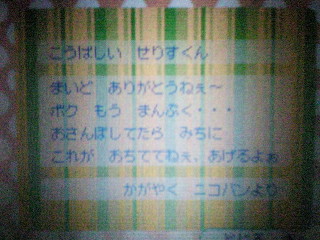 こうばしい せりすくん
まいど ありがとうねぇ～
ボク もう まんぷく・・・
おさんぽしてたら みちに
これが おちててねぇ、あげるよぉ
かがやく ニコバンより